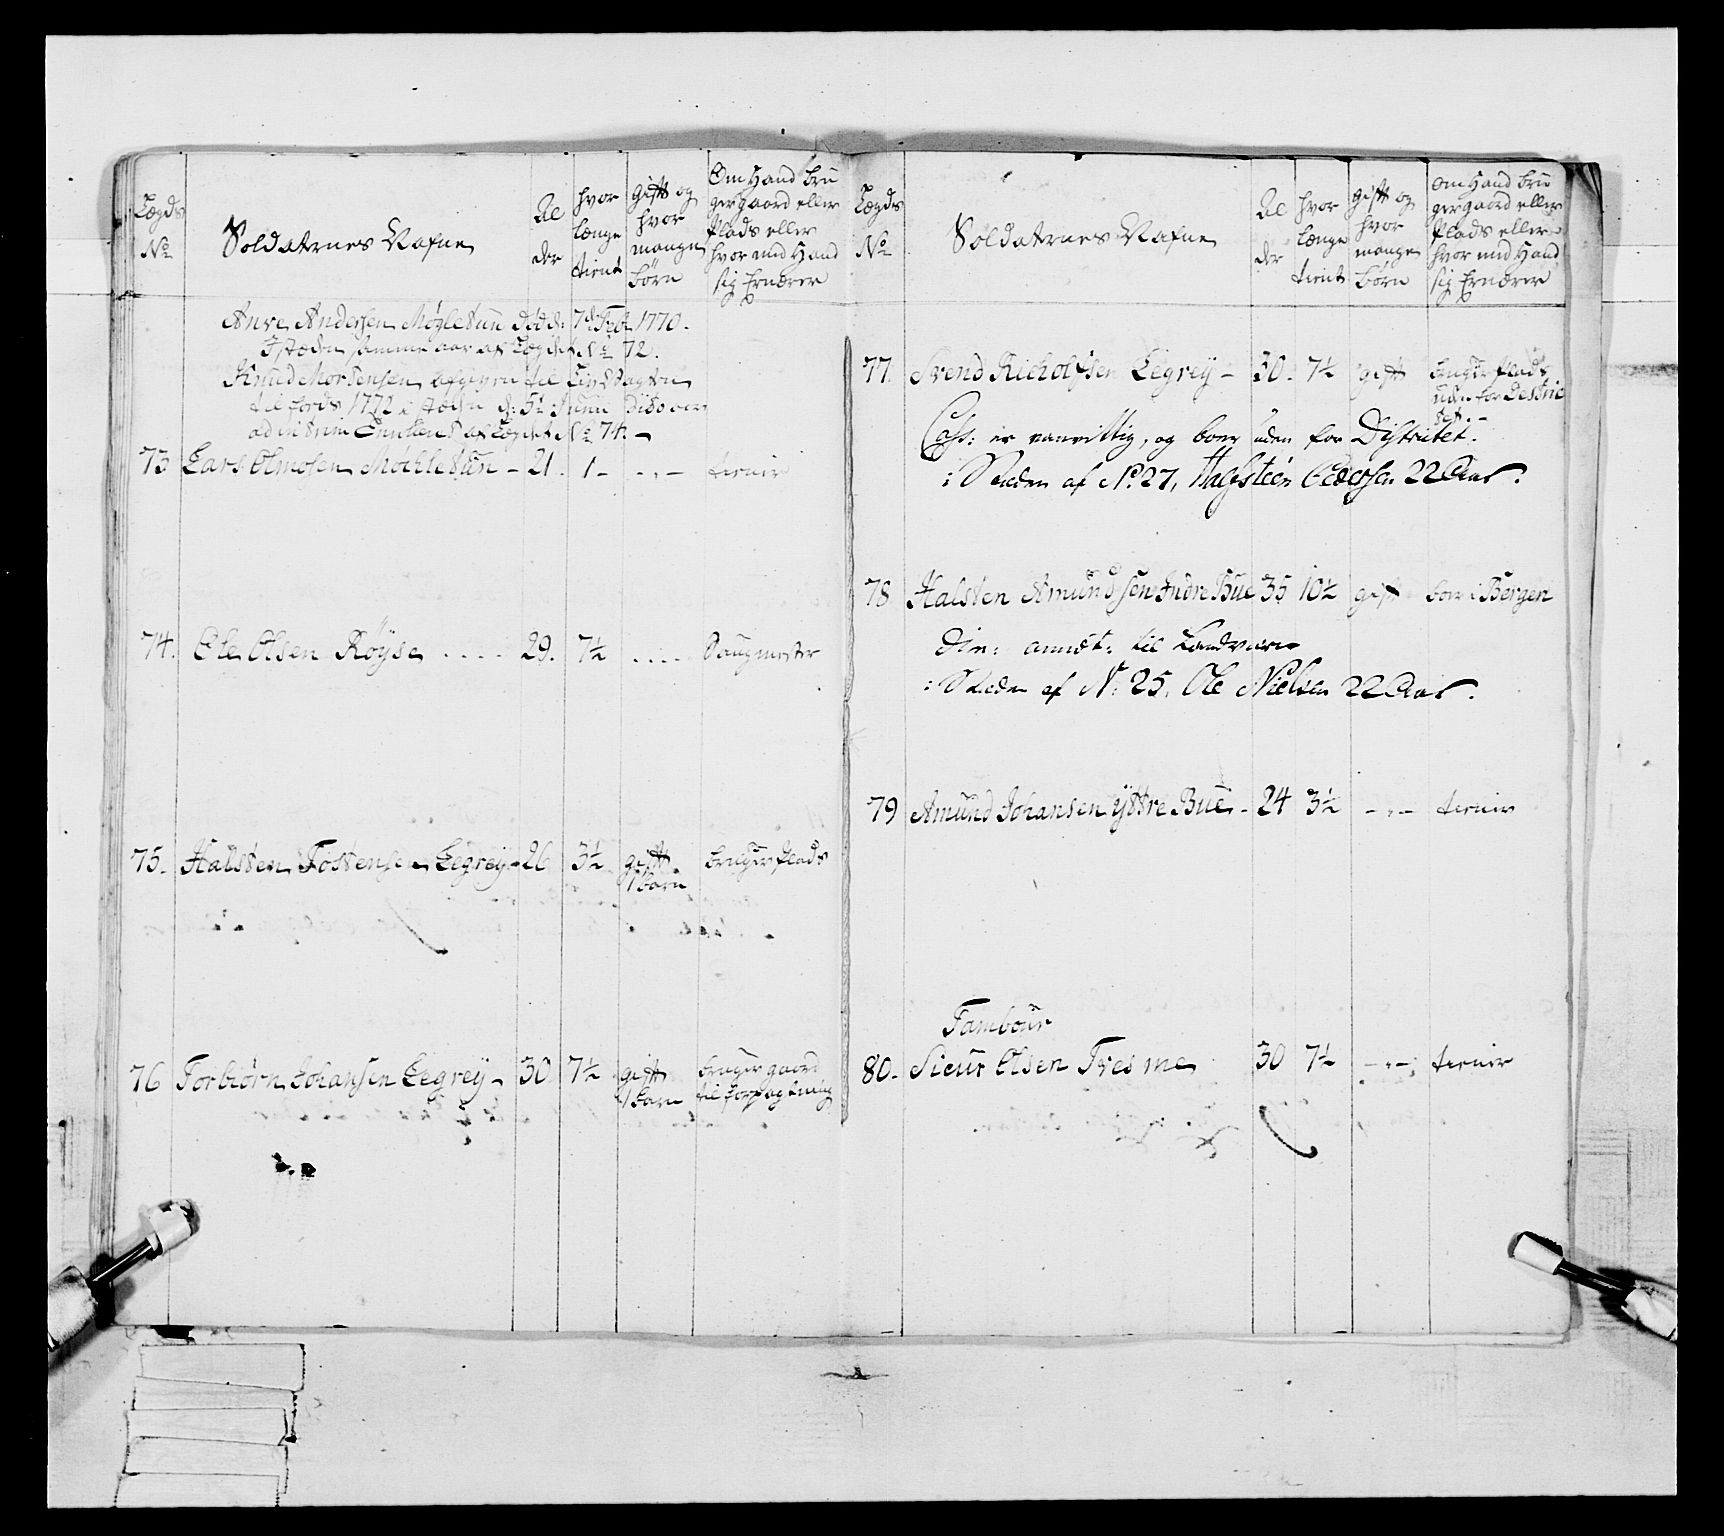 Lægds
No
Soldaternes Nafne
Al
der
hvor
længe
tient
gift og
hvor
mange
børn
Om Hand bru
ger gaard eller
Plads eller
hvor med Hand
sig Ernærer
Anve Andersen Møgletun død d: 7de Feb 1770.
I stæden samme aar af Lægdet No 72.
Knud Mortensen afgiven til Liv Vagten
til fods 1772 i stæden d: 5te Junii
af Lægdet No 74.
73 Lars Olmosen Møchletun - 21. 1 - - " - tiener
74. Ole Olsen Röyse . . . . . 29. 7½ . . . . . Saugmester
75. Halsten Tostensen Legrey - 26 3½ gift bruger Plads
1 barn
76 Torbiørn Johansen Legrey - 30 7½ gift bruger gaard
1 barn til forpagtning
Lægds
No
Soldaternes Nafne
Al
der
hvor
længe
tient
gift og
hvor
mange
børn
Om Hand bru
ger gaard eller
Plads eller
hvor med Hand
sig Ernærer
77. Svend Richolfsen Legrey - 30. 7½ gift bruger Plads
uden for Destric
tet. -
Cass: er vanvittig, og boer uden for Districtet.
i Steden af No. 27, Halfsteen Pedersen 22 Aar.
78 Halsten Amundsen Indre Bue 35 10½ gift boer i Bergen
til Landværn
i Steden af No: 25. Ole Nielsen 22 Aar.
79 Amund Johansen Yttre Bue - 24 3½ - " - tiener
Tambour
80. Siour Olsen Tresme 30 7½ - " - tiener